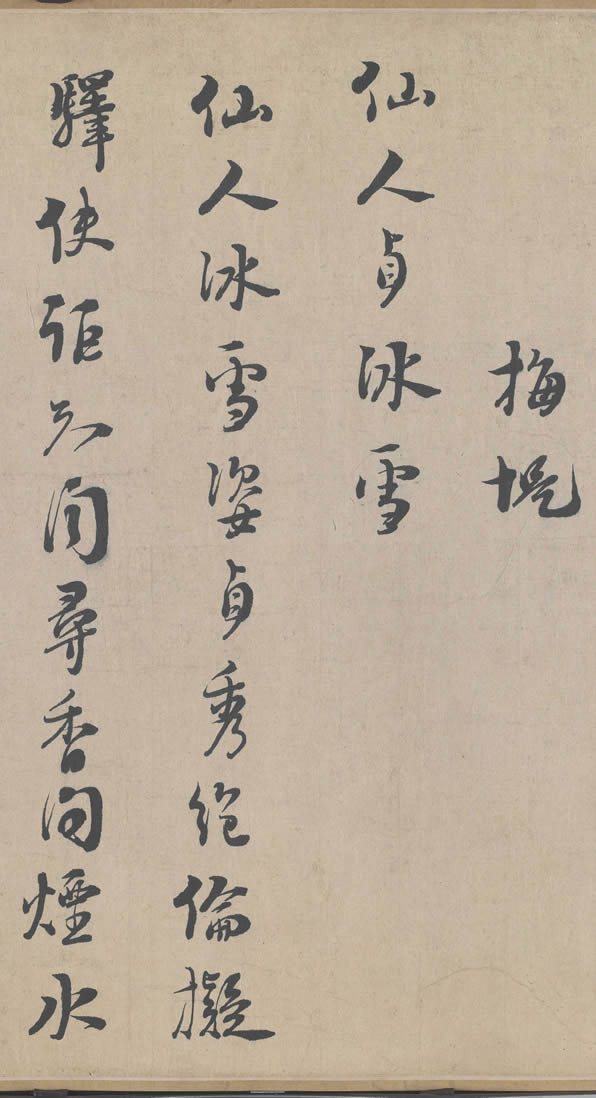 梅堤
仙人貞冰雪
仙人冰雪姿貞秀絕倫擬
驛使詎知聞尋香問煙水